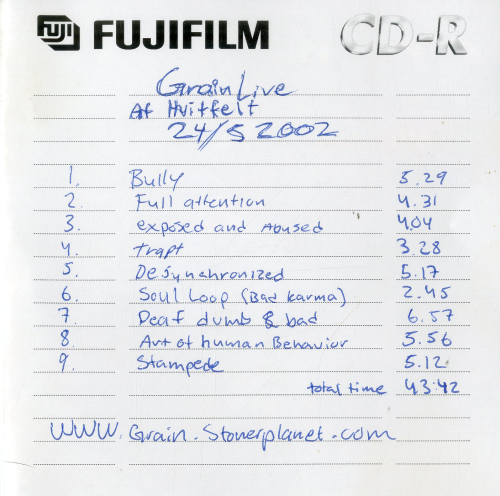 FUJI FUJIFILM CD-R
Grain Live
At Hvitfelt
24/5 2002
1. Bully 5.29
2. Full attention 4.31
3. exposed and Abused 4.04
4. trapt 3.28
5. Desynchronized 5.17
6. Soul Loop (Bad karma) 2.45
7. Deaf dumb & bad 6.57
8. Art of human Behavior 5.56
9. Stampede 5.12
total time 43:42
WWW.Grain.Stonerplanet.com